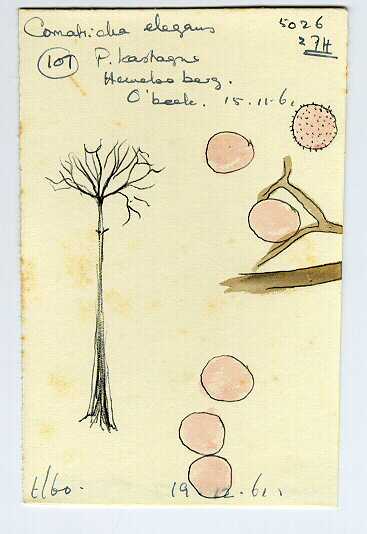 Comatricha elegans
5026
27H
101 P. kastagne
Hemelse berg.
O'beek. 15.11.61
t/60.
19.12.61.